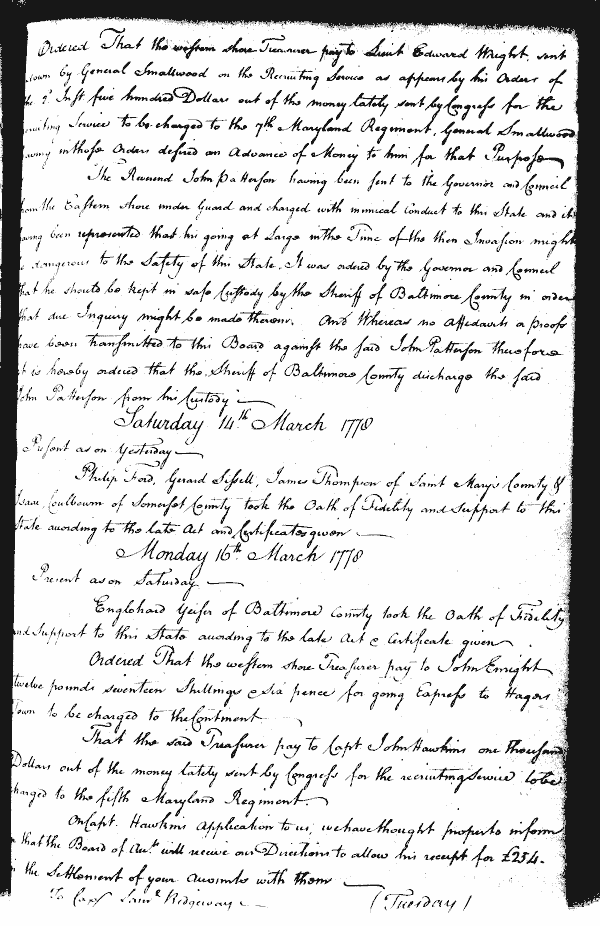 Ordered That the western shore Treasurer pay to Lieut Edward Wright, sent
down by General Smallwood on the Recruiting Service as appears by his Orders of
the 2d Inst five hundred Dollars out of the money lately sent by Congress for the
cruiting Service to be charged to the 7th Maryland Regiment, General Smallwood
having in those Orders desired an Advance of Money to him for that Purpose
The Reverend John Patterson having been sent to the Governor and Council
from the Eastern Shore under Guard and charged with inimical Conduct to this State and it
having been represented that his going at Large in the Time of the then Invasion might
be dangerous to the Safety of this State, It was ordered by the Governor and Council
that he should be kept in safe Custody by the Sheriff of Baltimore County in order
that due Inquiry might be made therein. And Whereas no Affidavits or Proofs
have been transmitted to this Board against the said John Patterson therefore
it is hereby ordered that the Sheriff of Baltimore County discharge the said
John Patterson from his Custody
Saturday 14th March 1778
Present as on Yesterday
Philip Ford, Gerard Sissell, James Thompson of Saint Marys County &
Isaac Coulbourn of Somerset County took the Oath of Fidelity and Support to this
State according to the late Act and Certificates given
Monday 16th March 1778
Present as on Saturday
Englehard Yeiser of Baltimore County took the Oath of Fidelity
and Support to this State according to the late Act & Certificate given
Ordered That the western shore Treasurer pay to John Enright
twelve pounds seventeen Shillings & six pence for going Express to Hagers
Town to be charged to the Continent
That the said Treasurer pay to Capt John Hawkins one thousand
Dollars out of the money lately sent by Congress for the recruiting Service to be
charged to the fifth Maryland Regiment
On Capt. Hawkins Application to us, we have thought proper to inform
that the Board of Aud. will receive our Directions to allow his receipt for £254.
in the Settlement of your Accounts with them
To Capt Saml Ridgeway
(Tuesday)